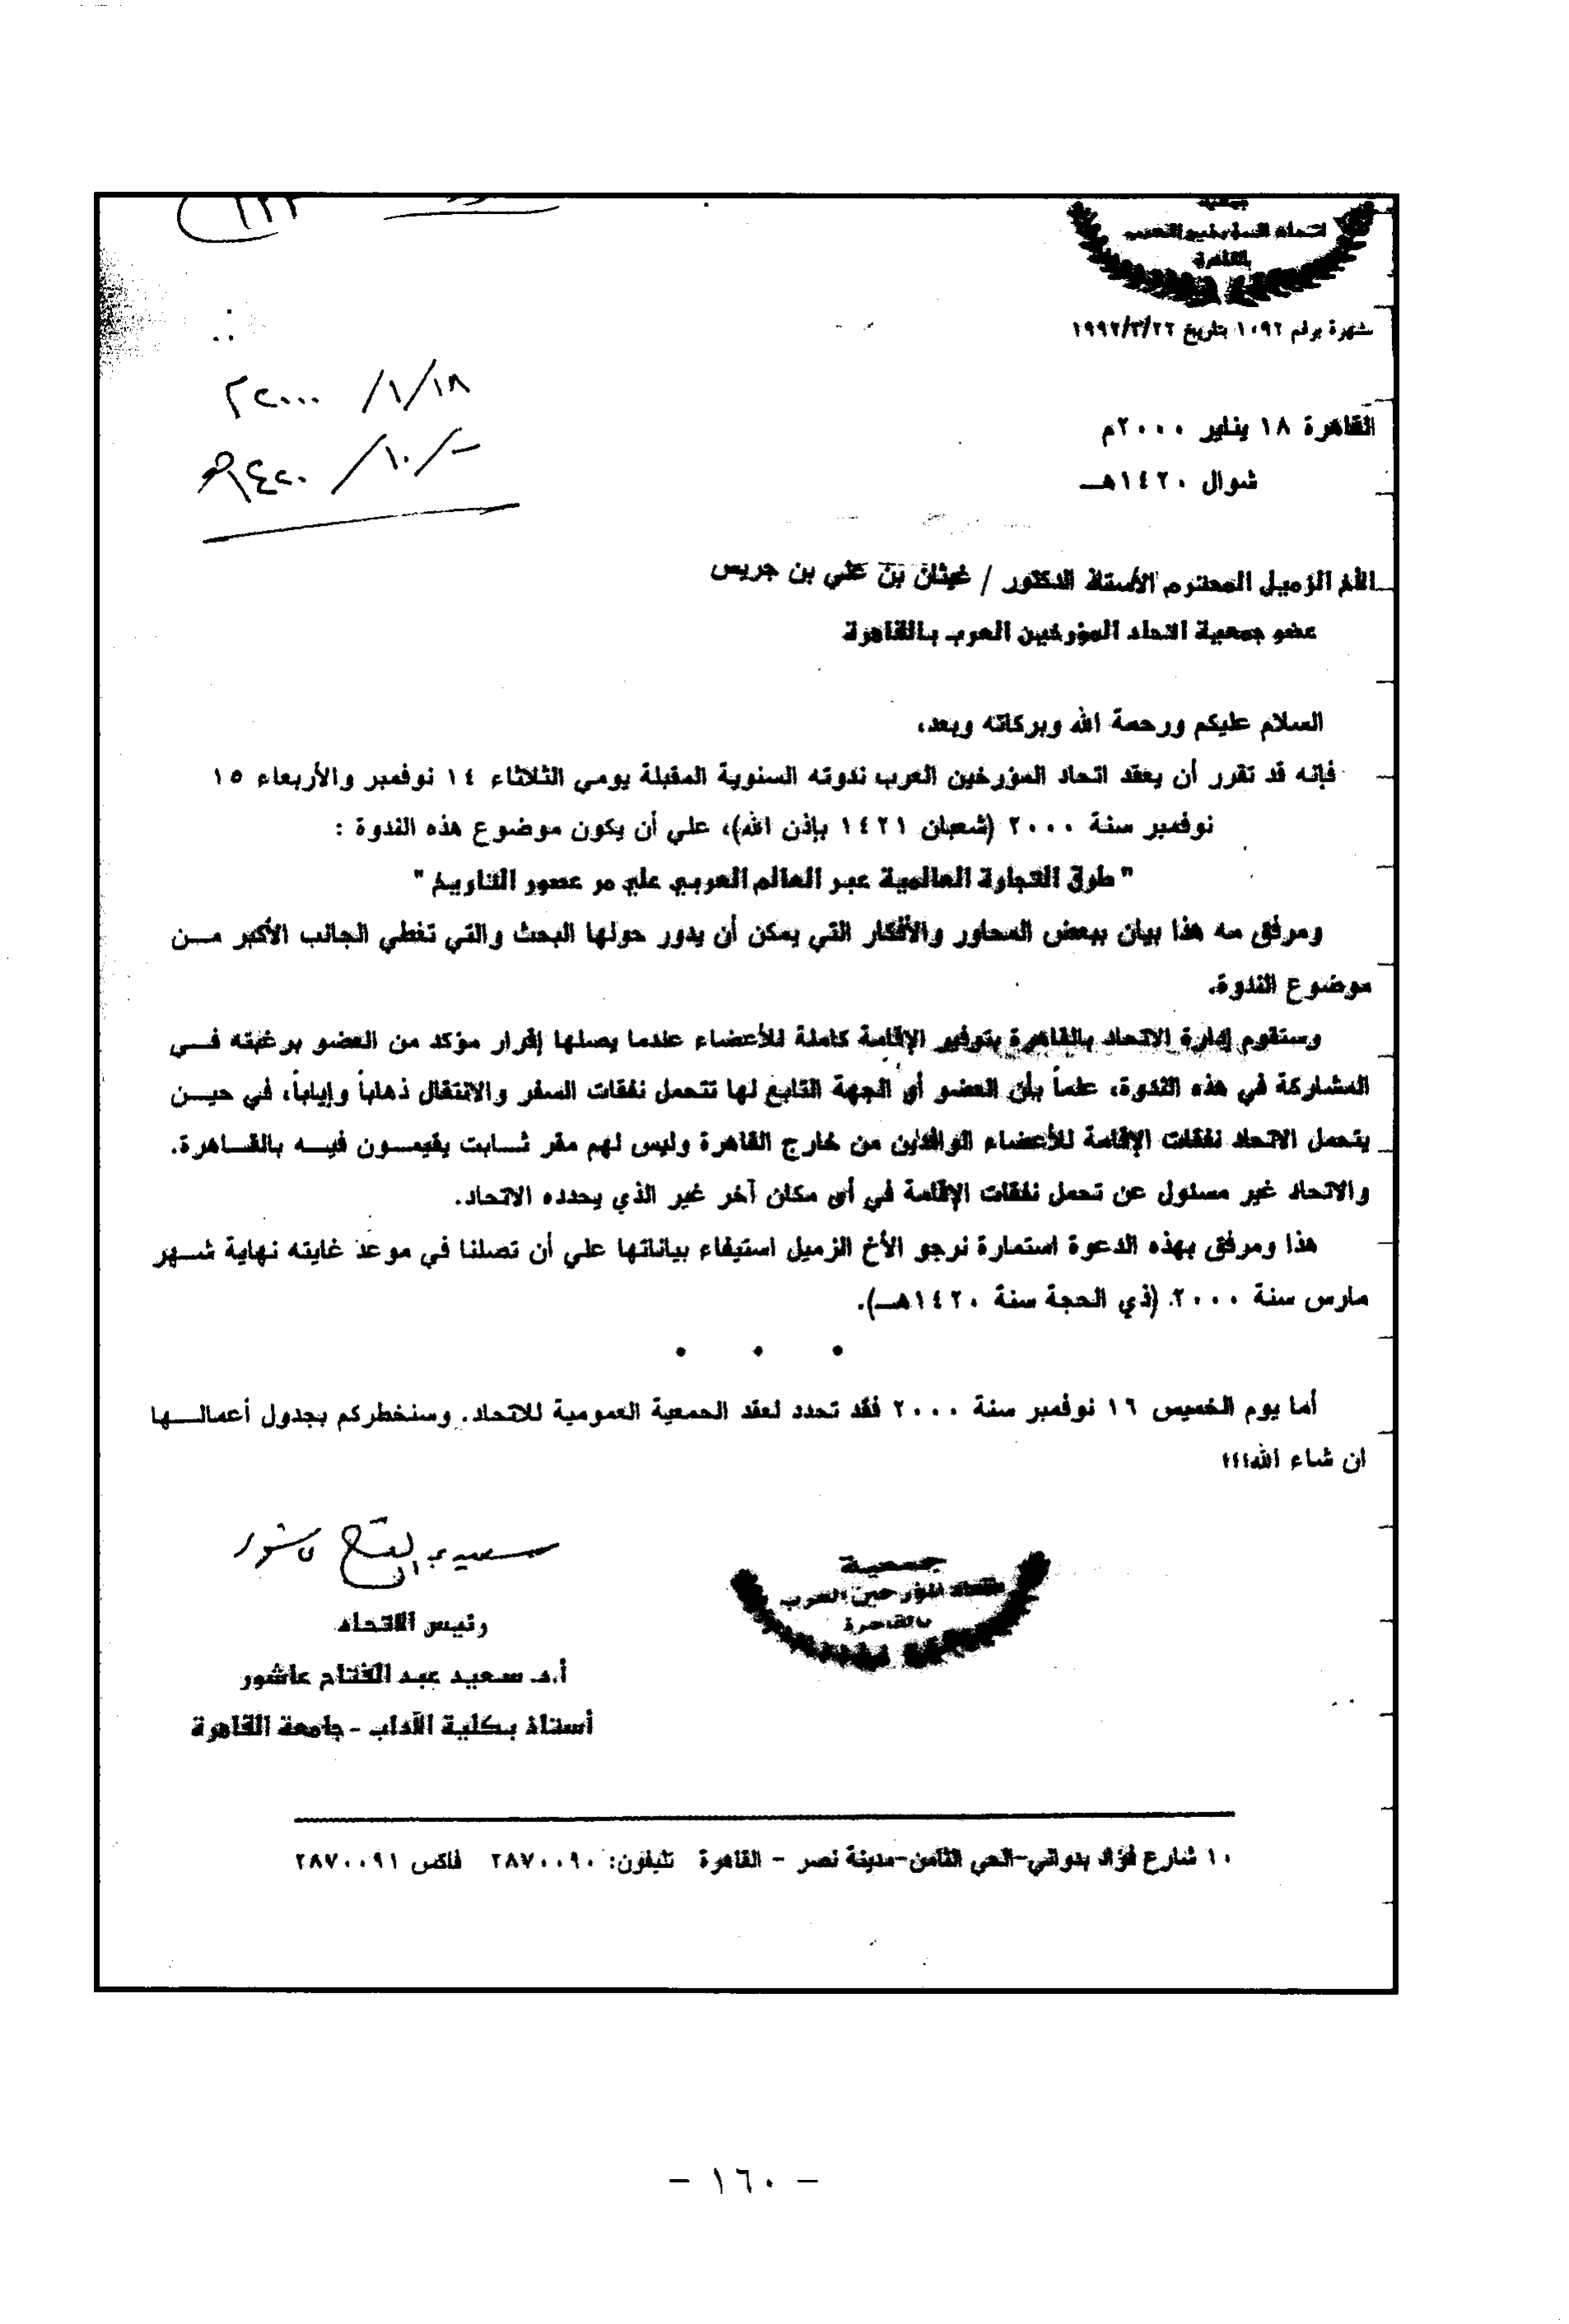 جمعية
اتحاد المؤرخين العرب
بالقاهرة
شهرة برقم ١٠٩٢ بتاريخ ١٩٩٢/٣/٢٢
٢٠٠٠/١/١٨م
-/١٠/١٤٢٠هـ
القاهرة ١٨ يناير ٢٠٠٠م
شوال ١٤٢٠هـ
الأخ الزميل المحترم الأستاذ الدكتور / غيثان بن علي بن جريس
عضو جمعية اتحاد المؤرخين العرب بالقاهرة
السلام عليكم ورحمة الله وبركاته وبعد،
فإنه قد تقرر أن يعقد اتحاد المؤرخين العرب ندوته السنوية المقبلة يومي الثلاثاء ١٤ نوفمبر والأربعاء ١٥
نوفمبر سنة ٢٠٠٠ (شعبان ١٤٢١ بإذن الله)، علي أن يكون موضوع هذه الندوة :
" طرق التجارة العالمية عبر العالم العربي علي مر عصور التاريخ "
ومرفق مه هذا بيان ببعض المحاور والأفكار التي يمكن أن يدور حولها البحث والتي تغطي الجانب الأكبر مــن
موضوع الندوة.
وستقوم إدارة الاتحاد بالقاهرة بتوفير الإقامة كاملة للأعضاء عندما يصلها إقرار مؤكد من العضو برغبته فــي
المشاركة في هذه الندوة، علماً بأن العضو أو الجهة التابع لها تتحمل نفقات السفر والانتقال ذهاباً وإياباً، في حيــن
يتحمل الاتحاد نفقات الإقامة للأعضاء الوافدين من خارج القاهرة وليس لهم مقر ثــابت يقيمــون فيــه بالقــاهرة.
والاتحاد غير مسئول عن تحمل نفقات الإقامة في أى مكان آخر غير الذي يحدده الاتحاد.
هذا ومرفق بهذه الدعوة استمارة نرجو الأخ الزميل استيفاء بياناتها علي أن تصلنا في موعد غايته نهاية شــهر
مارس سنة ٢٠٠٠. (ذي الحجة سنة ١٤٢٠هــ).
• • •
أما يوم الخميس ١٦ نوفمبر سنة ٢٠٠٠ فقد تحدد لعقد الجمعية العمومية للاتحاد. وسنخطركم بجدول أعمالــها
ان شاء الله،،،
سعيد عبد الفتاح عاشور
جمعية
اتحاد المؤرخين العرب
بالقاهرة
رئيس الاتحاد
أ.د. سعيد عبد الفتاح عاشور
أستاذ بكلية الآداب - جامعة القاهرة
١٠ شارع فؤاد بدواني-الحي الثامن-مدينة نصر - القاهرة تليفون: ٢٨٧٠٠٩٠ فاكس ٢٨٧٠٠٩١
- ١٦٠ -